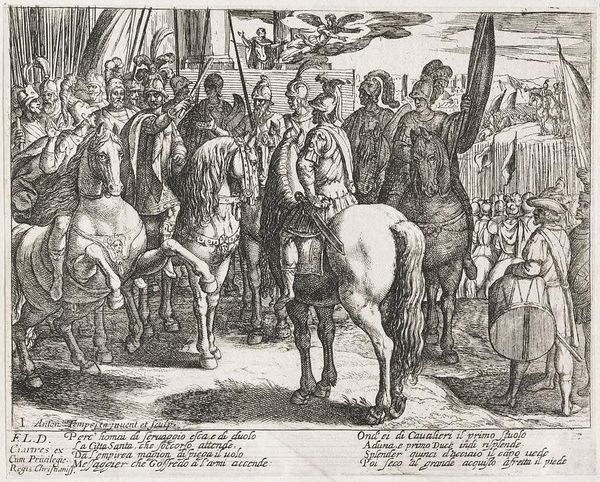 1 Anton. Tempesta inuent et sculp.
F L D.
Ciartres ex
Cum Priuilegio
Regis Christianiss.
Perc' homai di seruaggio esca e di duolo
La Citta Santa, che soccorso attende
Da l'empirea magion di piega il uolo
Messaggier che Goffredo a l'armi accende.
Ond' ei di Caualieri il primo stuolo
Aduna e primo Duce indi risplende
Splender quinci d'acciaio il capo uede
Poi seco al grande acquisto affretta il piede